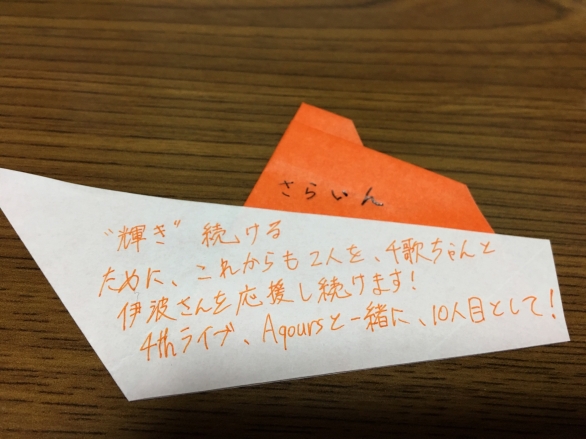 さらいん
"輝き" 続ける
ために、これからも2人を、千歌ちゃんと
伊波さんを応援し続けます!
4thライブ、Aqoursと一緒に、10人目として!